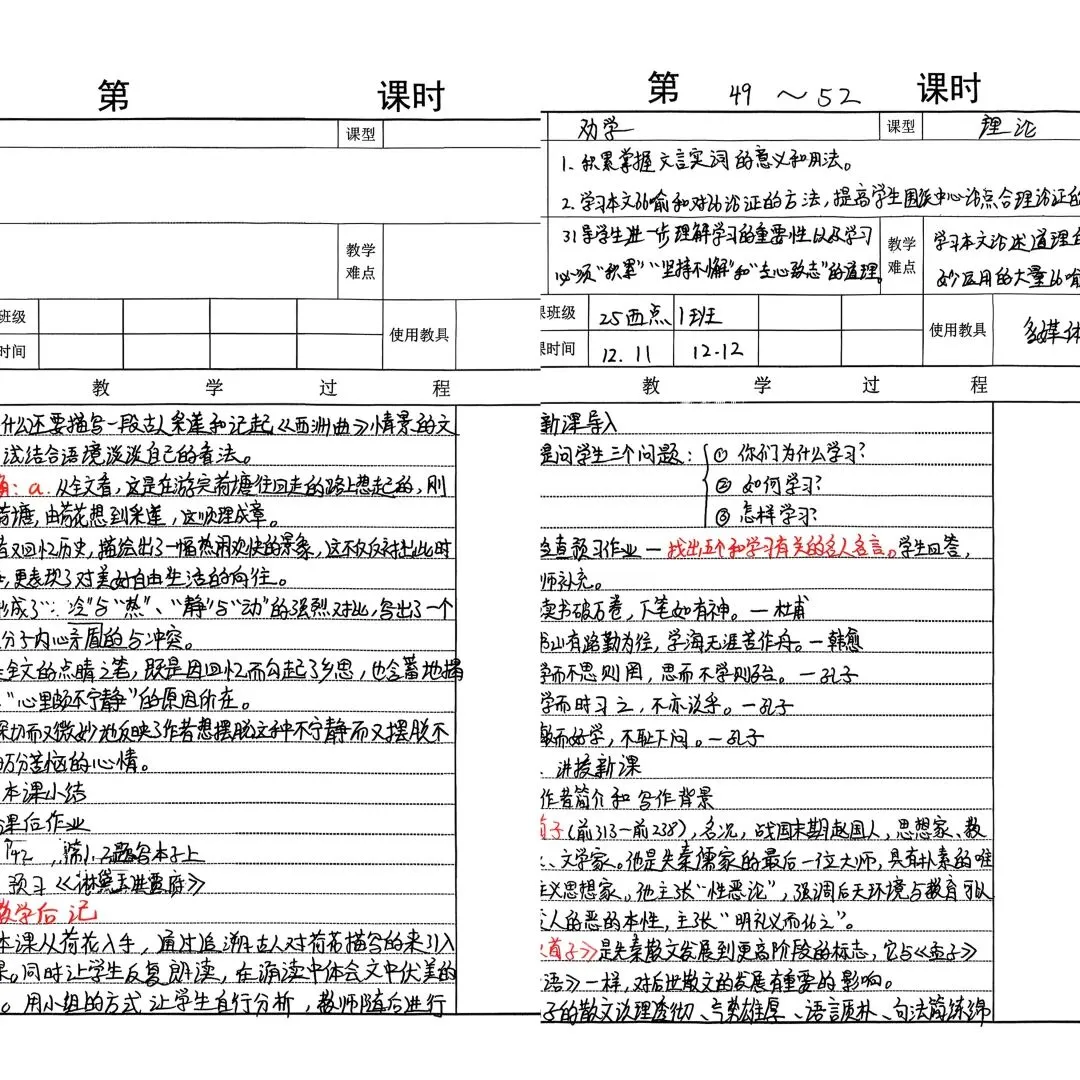 第 课时
课型
教学
难点
班级
时间
使用教具
教 学 过 程
什么还要描写一段古人采莲和记起《西洲曲》情景的文
试结合语境谈谈自己的看法。
a. 从全文看，这是在游完荷塘往回走的路上想起的，刚
荷塘，由荷花想到采莲，这顺理成章。
又回忆历史，描绘出了一幅热闹欢快的景象，这不仅反衬出此时
，更表现了对美好自由生活的向往。
形成了“冷”与“热”、“静”与“动”的强烈对比，写出了一个
分子内心矛盾的与冲突。
全文的点睛之笔，既是因回忆而勾起了乡思，也含蓄地描
“心里颇不宁静”的原因所在。
深切而又微妙地反映了作者想摆脱这种不宁静而又摆脱不
万分苦恼的心情。
本课小结
课后作业
P42 ，第1、2题写本子上
预习《林黛玉进贾府》
教学后记
本课从荷花入手，通过追溯古人对荷花描写的来引入
课。同时让学生反复朗读，在诵读中体会文中优美的
。用小组的方式让学生自行分析，教师随后进行
第 49 ～ 52 课时
劝学 课型 理论
1. 积累掌握文言实词的意义和用法。
2. 学习本文比喻和对比论证的方法，提高学生围绕中心论点合理论证的
引导学生进一步理解学习的重要性以及学习
必须“积累”“坚持不懈”和“专心致志”的道理。
教学
难点
学习本文论述道理
妙运用的大量比喻
课班级 25西点 1班
课时间 12.11 12.12
使用教具 多媒体
教 学 过 程
新课导入
提问学生三个问题：① 你们为什么学习？
② 如何学习？
③ 怎样学习？
检查预习作业 — 找出五个和学习有关的名人名言。学生回答，
师补充。
读书破万卷，下笔如有神。—杜甫
书山有路勤为径，学海无涯苦作舟。—韩愈
学而不思则罔，思而不学则殆。—孔子
学而时习之，不亦说乎。—孔子
敏而好学，不耻下问。—孔子
、讲授新课
作者简介和写作背景
荀子（前313—前238），名况，战国末期赵国人，思想家、教
、文学家。他是先秦儒家的最后一位大师，具有朴素的唯
主义思想家。他主张“性恶论”，强调后天环境与教育可以
变人的恶的本性，主张“明礼义而化之”。
《荀子》是先秦散文发展到更高阶段的标志，它与《孟子》
语》一样，对后世散文的发展有重要的影响。
子的散文说理透彻、气势雄厚、语言质朴、句法简练绵